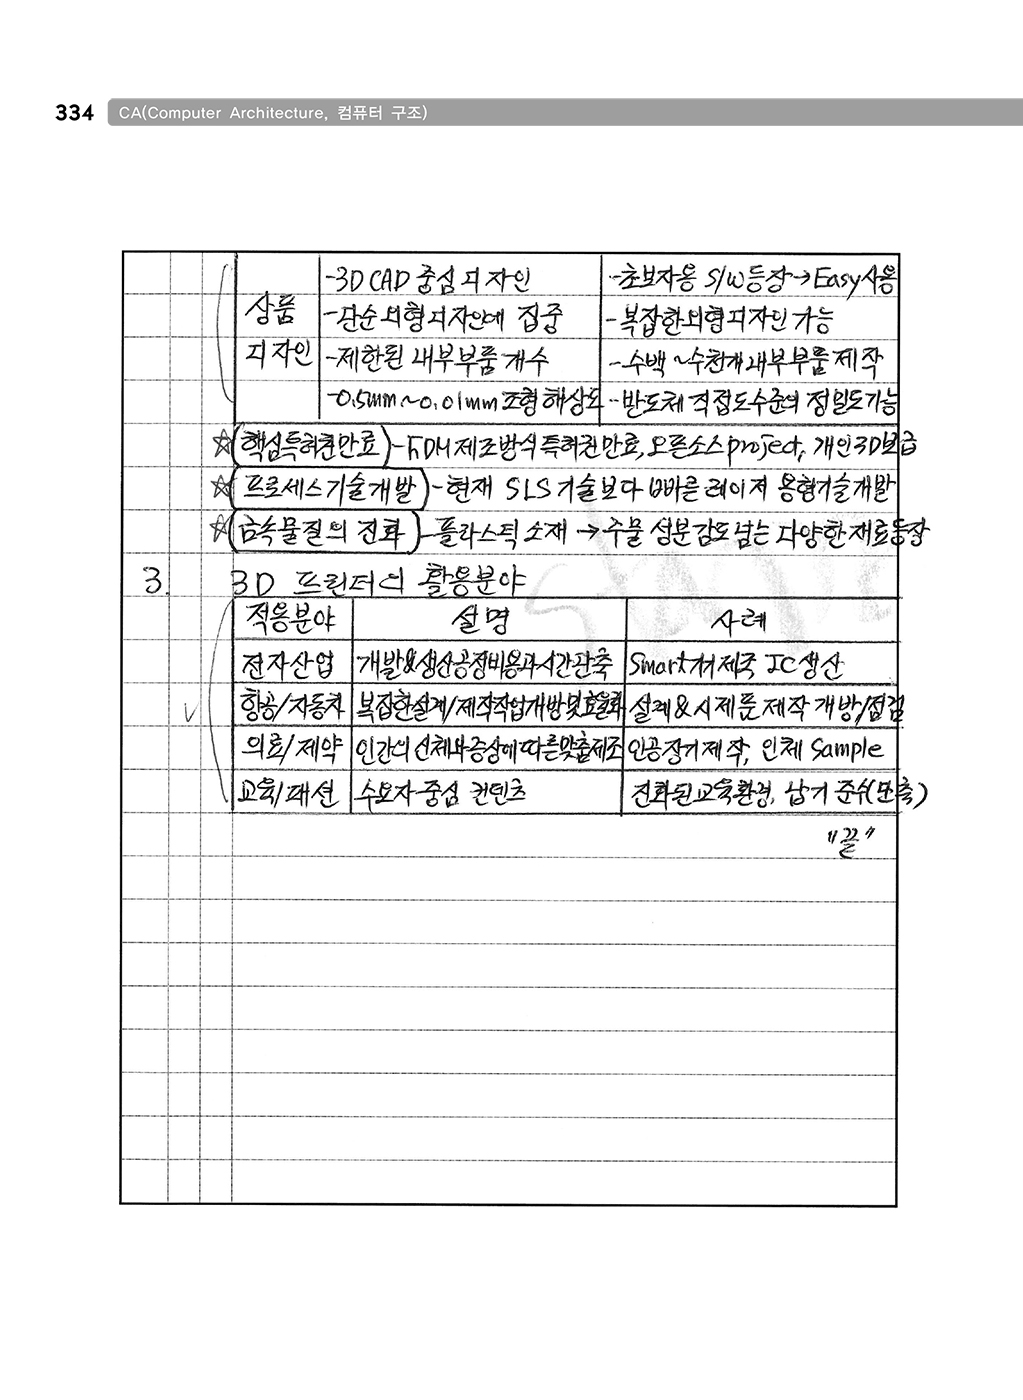 334 CA(Computer Architecture, 컴퓨터 구조)
-3D CAD 중심 디자인 -초보자용 S/W등장→Easy사용
상품 -단순외형디자인에 집중 -복잡한외형디자인 가능
디자인 -제한된 내부부품개수 -수백~수천개내부부품제작
-0.5mm~0.01mm조형해상도 -반도체 직접도수준의 정밀도가능
☆(핵심특허권만료)-FDM제조방식특허권만료,오픈소스project, 개인3D보급
☆(프로세스기술개발)-현재 SLS기술보다 빠른 레이저 용형기술개발
☆(금속물질의 진화)-플라스틱소재→주물 성분강도넘는 다양한재료등장
3. 3D 프린터의 활용분야
적용분야 설명 사례
전자산업 개발&생산공정비용과시간단축 Smart기저제국 IC생산
항공/자동차 복잡한설계/제작작업개방및효율화 설계&시제품제작 개방/점검
의료/제약 인간의신체와증상에따른맞춤제조 인공장기제작, 인체 Sample
교육/패션 수요자중심 컨텐츠 진화된교육환경, 납기 준수(단축)
"끝"